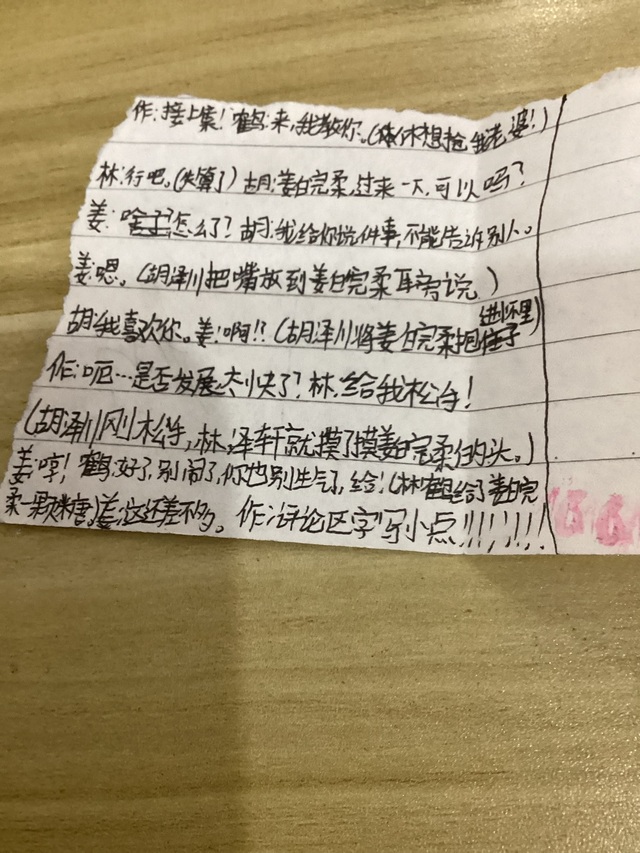 作:接上集!鹤:来,我教你。(休想抢我老婆!)
林:行吧。(失算了)胡:姜白完柔,过来一下,可以吗?
姜:啥子?怎么了?胡:我给你说件事,不能告诉别人。
姜:嗯。(胡泽川把嘴放到姜白完柔耳旁说。)
胡:我喜欢你。姜:啊!!(胡泽川将姜白完柔抱住了进怀里)
作:呃…是否发展太快了?林:给我松手!
(胡泽川刚松手,林泽轩就摸了摸姜白完柔的头。)
姜:哼!鹤:好了,别闹了,你也别生气了,给!(林鹤给了姜白完
柔一颗糖)姜:这还差不多。作:评论区字写小点!!!!!!!